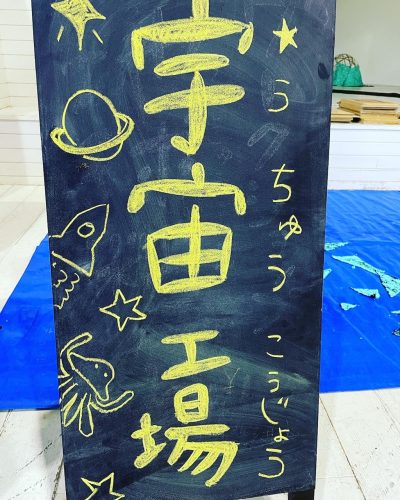 宇宙工場
★うちゅうこうじょう